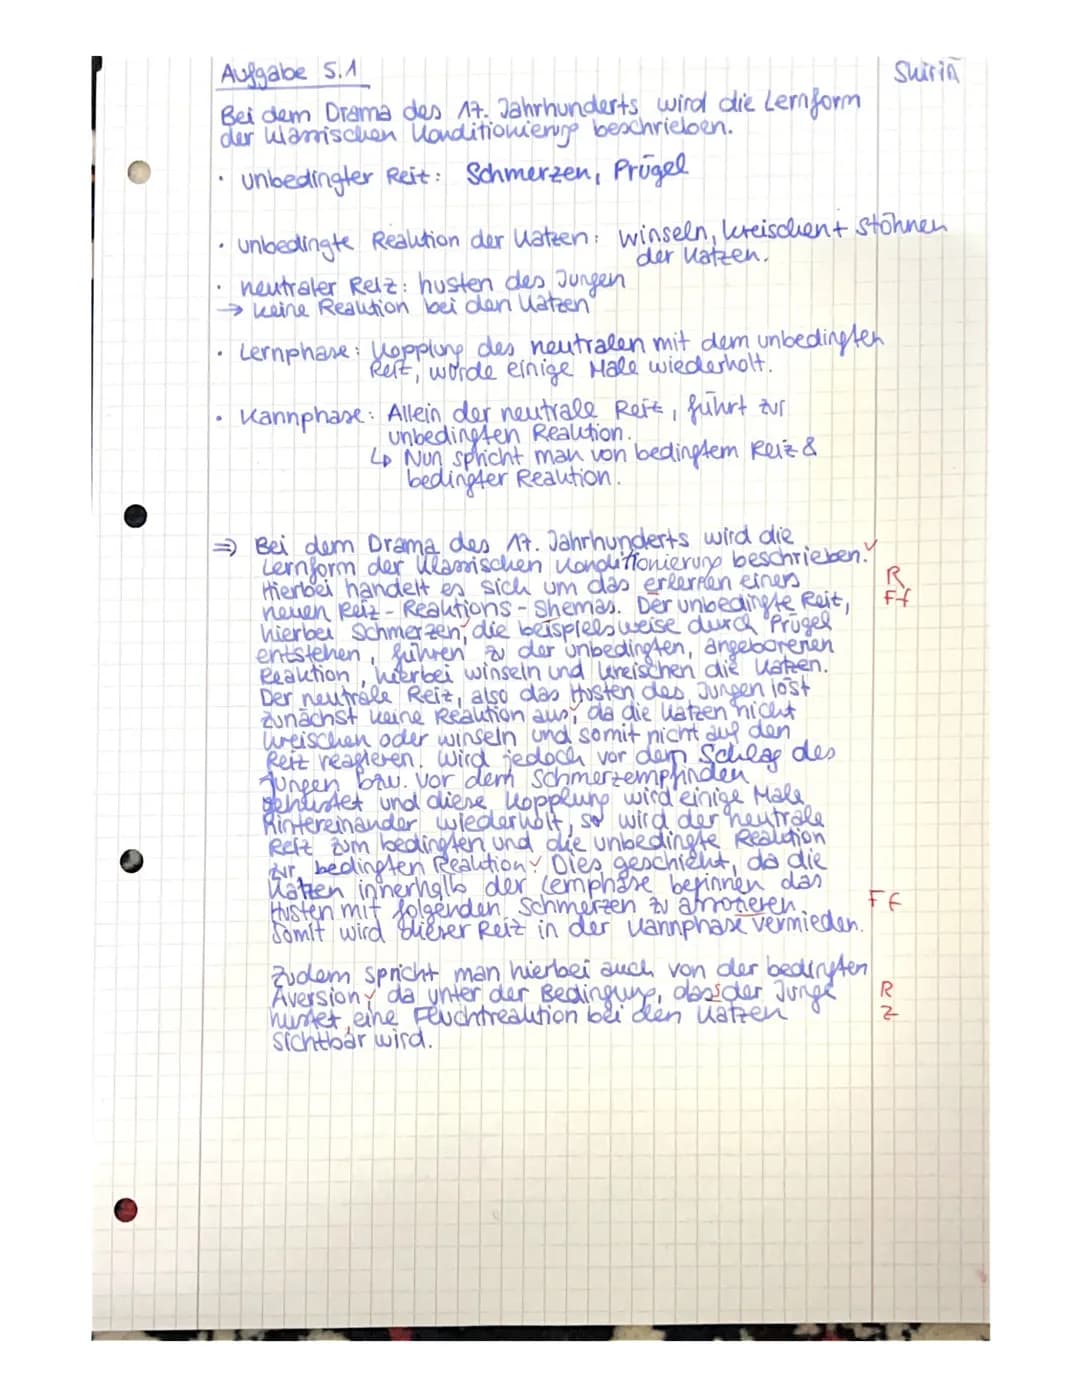 Aufgabe 5.1
Shirin
Bei dem Drama des 17. Jahrhunderts wird die Lernform
der klassischen Konditionierung beschrieben.
• unbedingter Reiz: Schmerzen, Prügel
• unbedingte Reaktion der Katzen: winseln, kreischen + stöhnen
der Katzen.
• neutraler Reiz: husten des Jungen
→ keine Reaktion bei den Katzen
• Lernphase: Kopplung des neutralen mit dem unbedingten
Reiz, würde einige Male wiederholt.
• Kannphase: Allein der neutrale Reiz, führt zur
unbedingten Reaktion.
↳ Nun spricht man von bedingtem Reiz &
bedingter Reaktion.
⇒ Bei dem Drama des 17. Jahrhunderts wird die
Lernform der klassischen Konditionierung beschrieben. ✓
Hierbei handelt es sich um das erlernen eines R
neuen Reiz-Reaktions-Shemas. Der unbedingte Reiz, Ff
hierbei Schmerzen, die beispielsweise durch Prügel
entstehen, führen zu der unbedingten, angeborenen
Reaktion, hierbei winseln und kreischen die Katzen.
Der neutrale Reiz, also das Husten des Jungen löst
zunächst keine Reaktion aus, da die Katzen nicht
kreischen oder winseln und somit nicht auf den
Reiz reagieren. Wird jedoch vor dem Schlag des
Jungen bzw. vor dem Schmerzempfinden
gehustet und diese Kopplung wird einige Male
hintereinander wiederholt, so wird der neutrale
Reiz zum bedingten und die unbedingte Reaktion
zur bedingten Reaktion. ✓ Dies geschieht, da die
Katzen innerhalb der Lernphase beginnen das
Husten mit folgenden Schmerzen zu Ff
Somit wird dieser Reiz in der Kannphase vermieden.
Zudem spricht man hierbei auch von der bedingten
Aversion, da unter der Bedingung, dass der Junge R
hustet, eine Feuchtreaktion bei den Katzen Z
sichtbar wird.